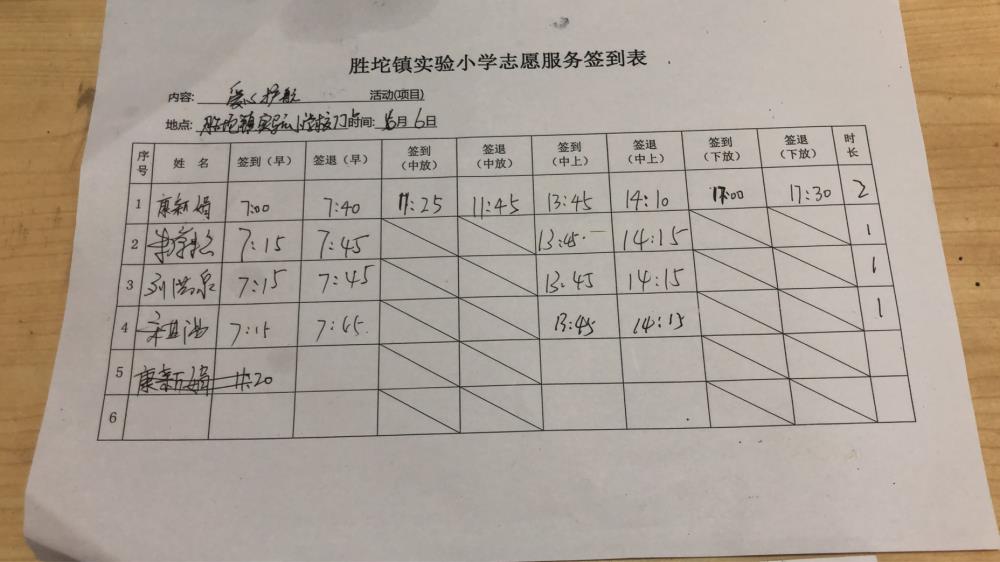 胜坨镇实验小学志愿服务签到表
内容: 爱心护航 活动(项目)
地点: 胜坨镇实验小学校门口 时间: 月 6 日
序号 姓 名 签到（早） 签退（早） 签到（中放） 签退（中放） 签到（中上） 签退（中上） 签到（下放） 签退（下放） 时长
1 康新娟 7:00 7:40 11:25 11:45 13:45 14:10 17:00 17:30 2
2 7:15 7:45 13:45 14:15 1
3 刘洪泉 7:15 7:45 13:45 14:15 1
4 7:15 7:45 13:45 14:15 1
5 康新娟 11:20
6